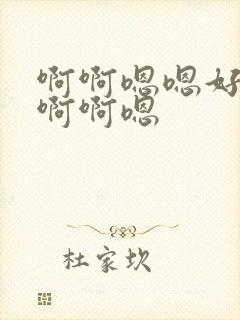 啊啊嗯嗯好
啊啊嗯
杜家坎